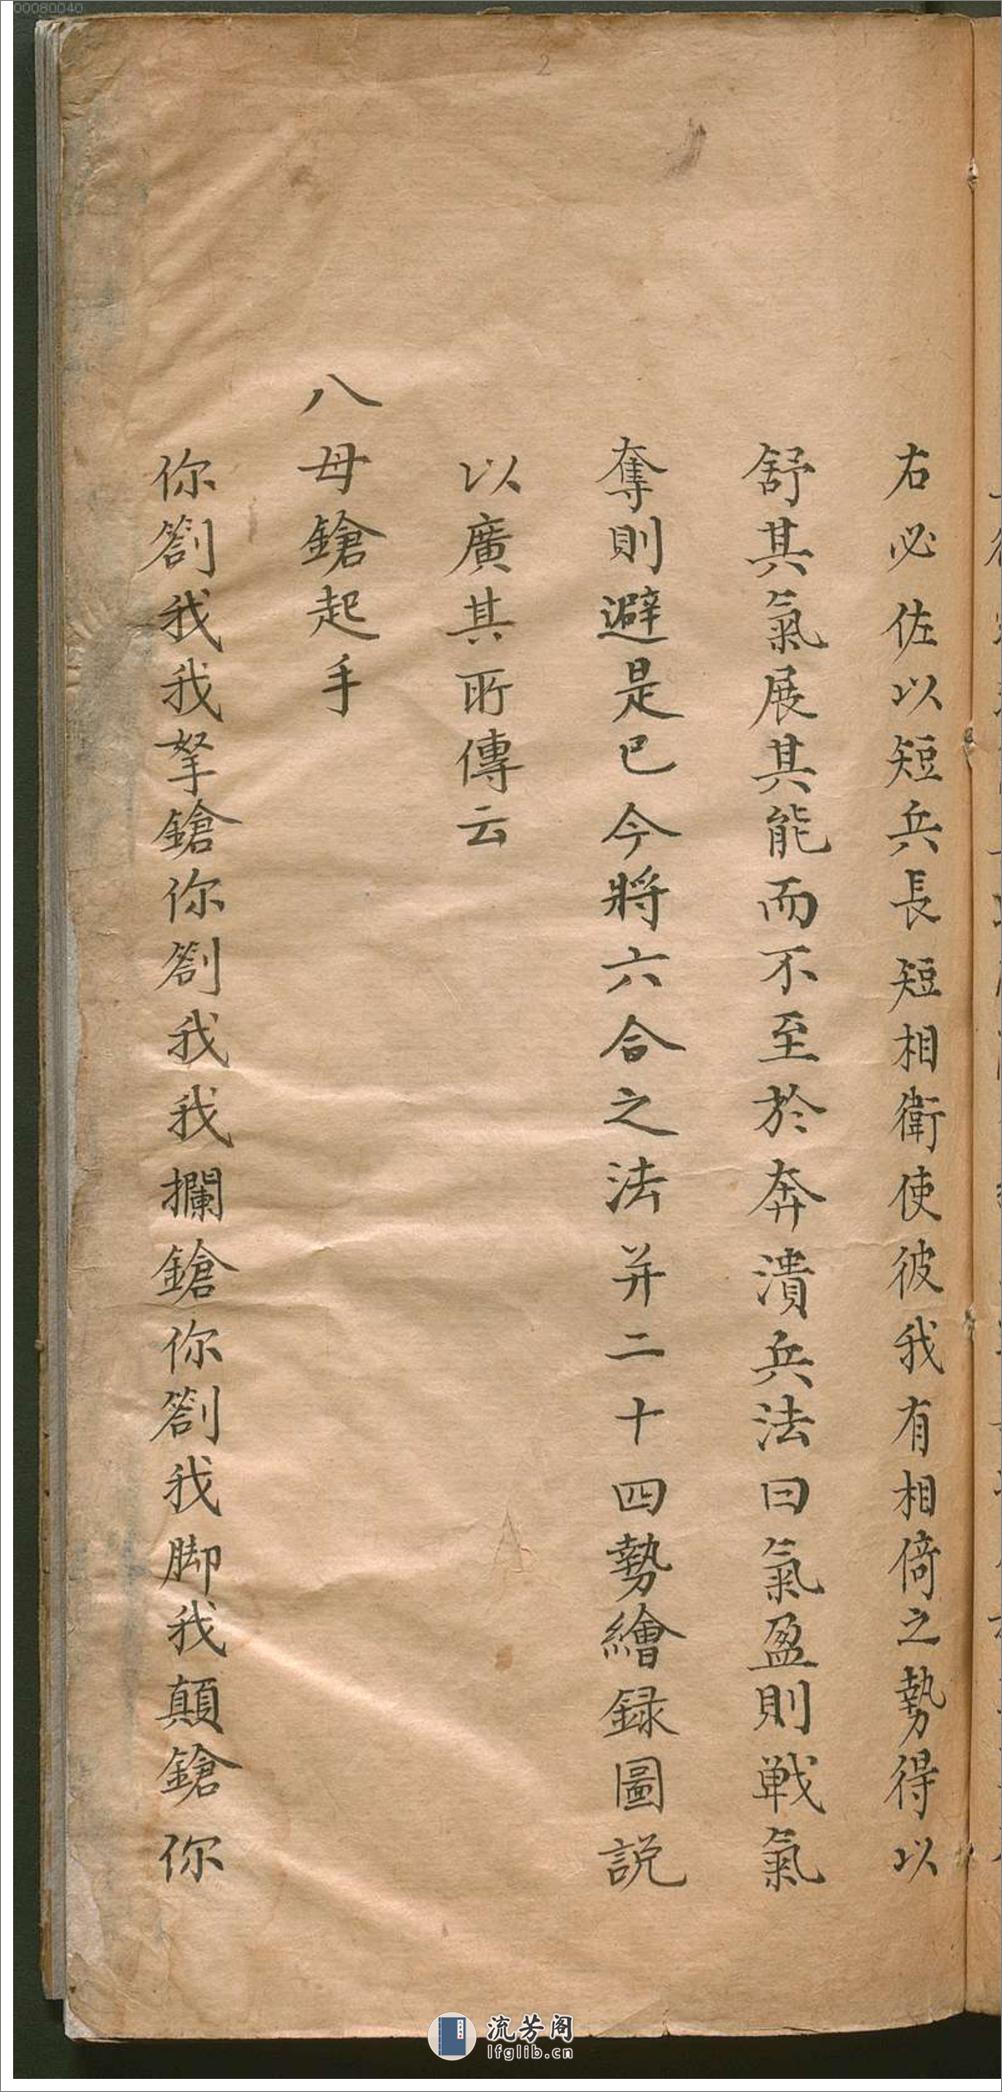 右必佐以短兵長短相衛使彼我有相倚之勢得以
舒其氣展其能而不至於奔潰兵法曰氣盈則戰氣
奪則避是已今將六合之法并二十四勢繪録圖説
以廣其所傳云
八母鎗起手
你劄我我拏鎗你劄我我攔鎗你劄我脚我顛鎗你
2
00080040
流芳阁
lfglib.cn